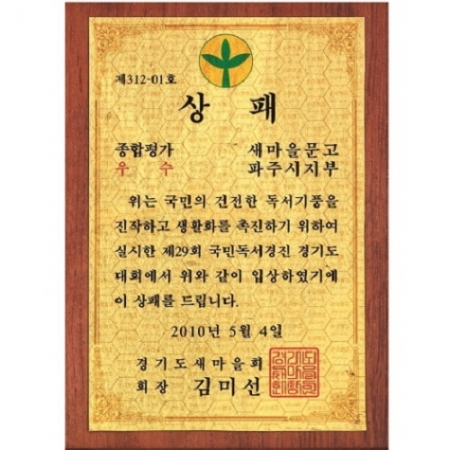 제312-01호
상 패
종합평가 새마을문고
우 수 파주시지부
위는 국민의 건전한 독서기풍을
진작하고 생활화를 촉진하기 위하여
실시한 제29회 국민독서경진 경기도
대회에서 위와 같이 입상하였기에
이 상패를 드립니다.
2010년 5월 4일
경기도새마을회
회장 김미선